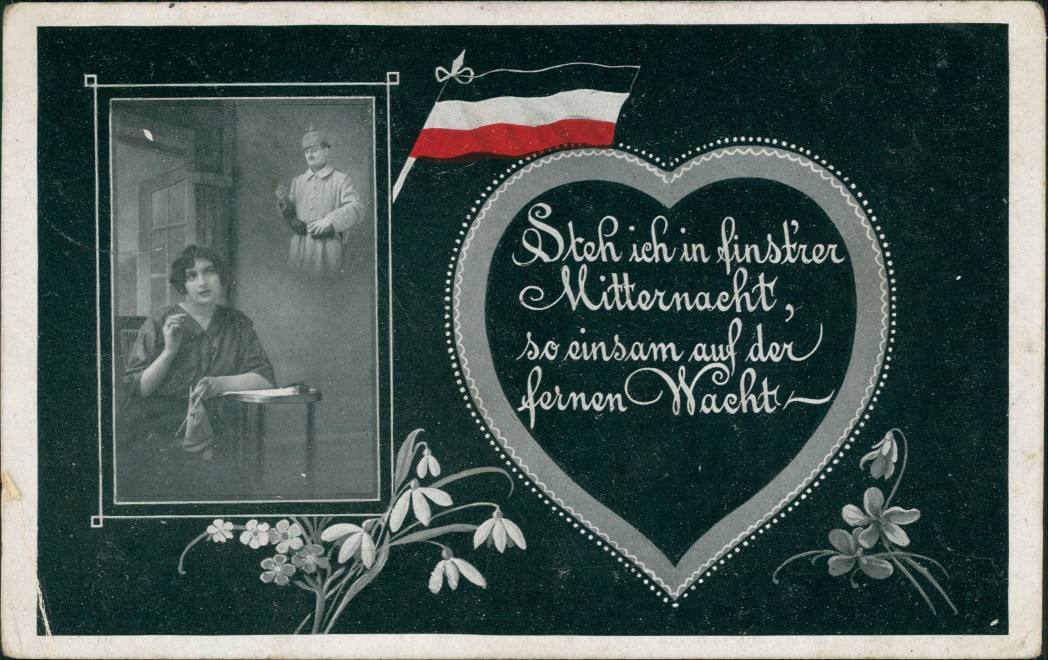 Steh ich in finst'rer
Mitternacht,
so einsam auf der
fernen Wacht –